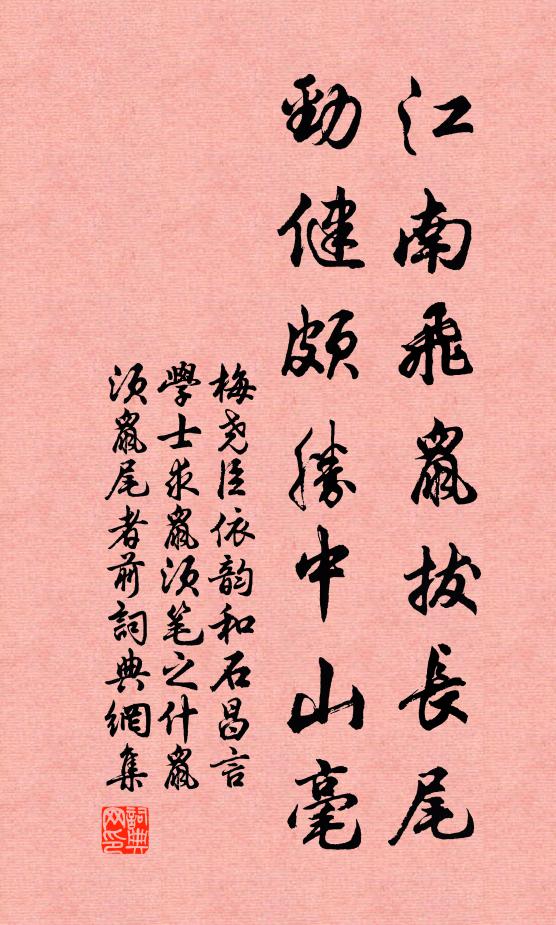 江南飛鼠拔長尾
勁健頗勝中山毫
梅尧臣依韵和石昌言
學士求鼠须笔之什鼠
须鼠尾者前詞典網集
詞典网印